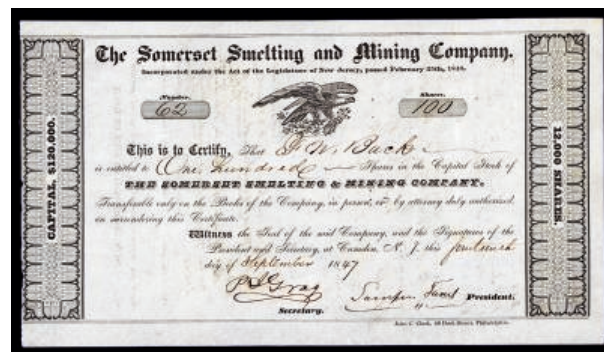 The Somerset Smelting and Mining Company.
Incorporated under the Act of the Legislature of New Jersey, passed February 25th,
Number.
62
Shares.
100
This is to Certify, That
is entitled to One hundred Shares in the Capital Stock of
THE SOMERSET SMELTING & MINING COMPANY.
Transferable only on the Books of the Company, in person, or by attorney duly authorized,
on surrendering this Certificate.
Witness the Seal of the said Company, and the Signatures of the
President and Secretary, at Camden, N. J. this
day of September 1847
Secretary.
President.
CAPITAL, $120,000.
12,000 SHARES.
John C. Clark, 60 Dock Street, Philadelphia.